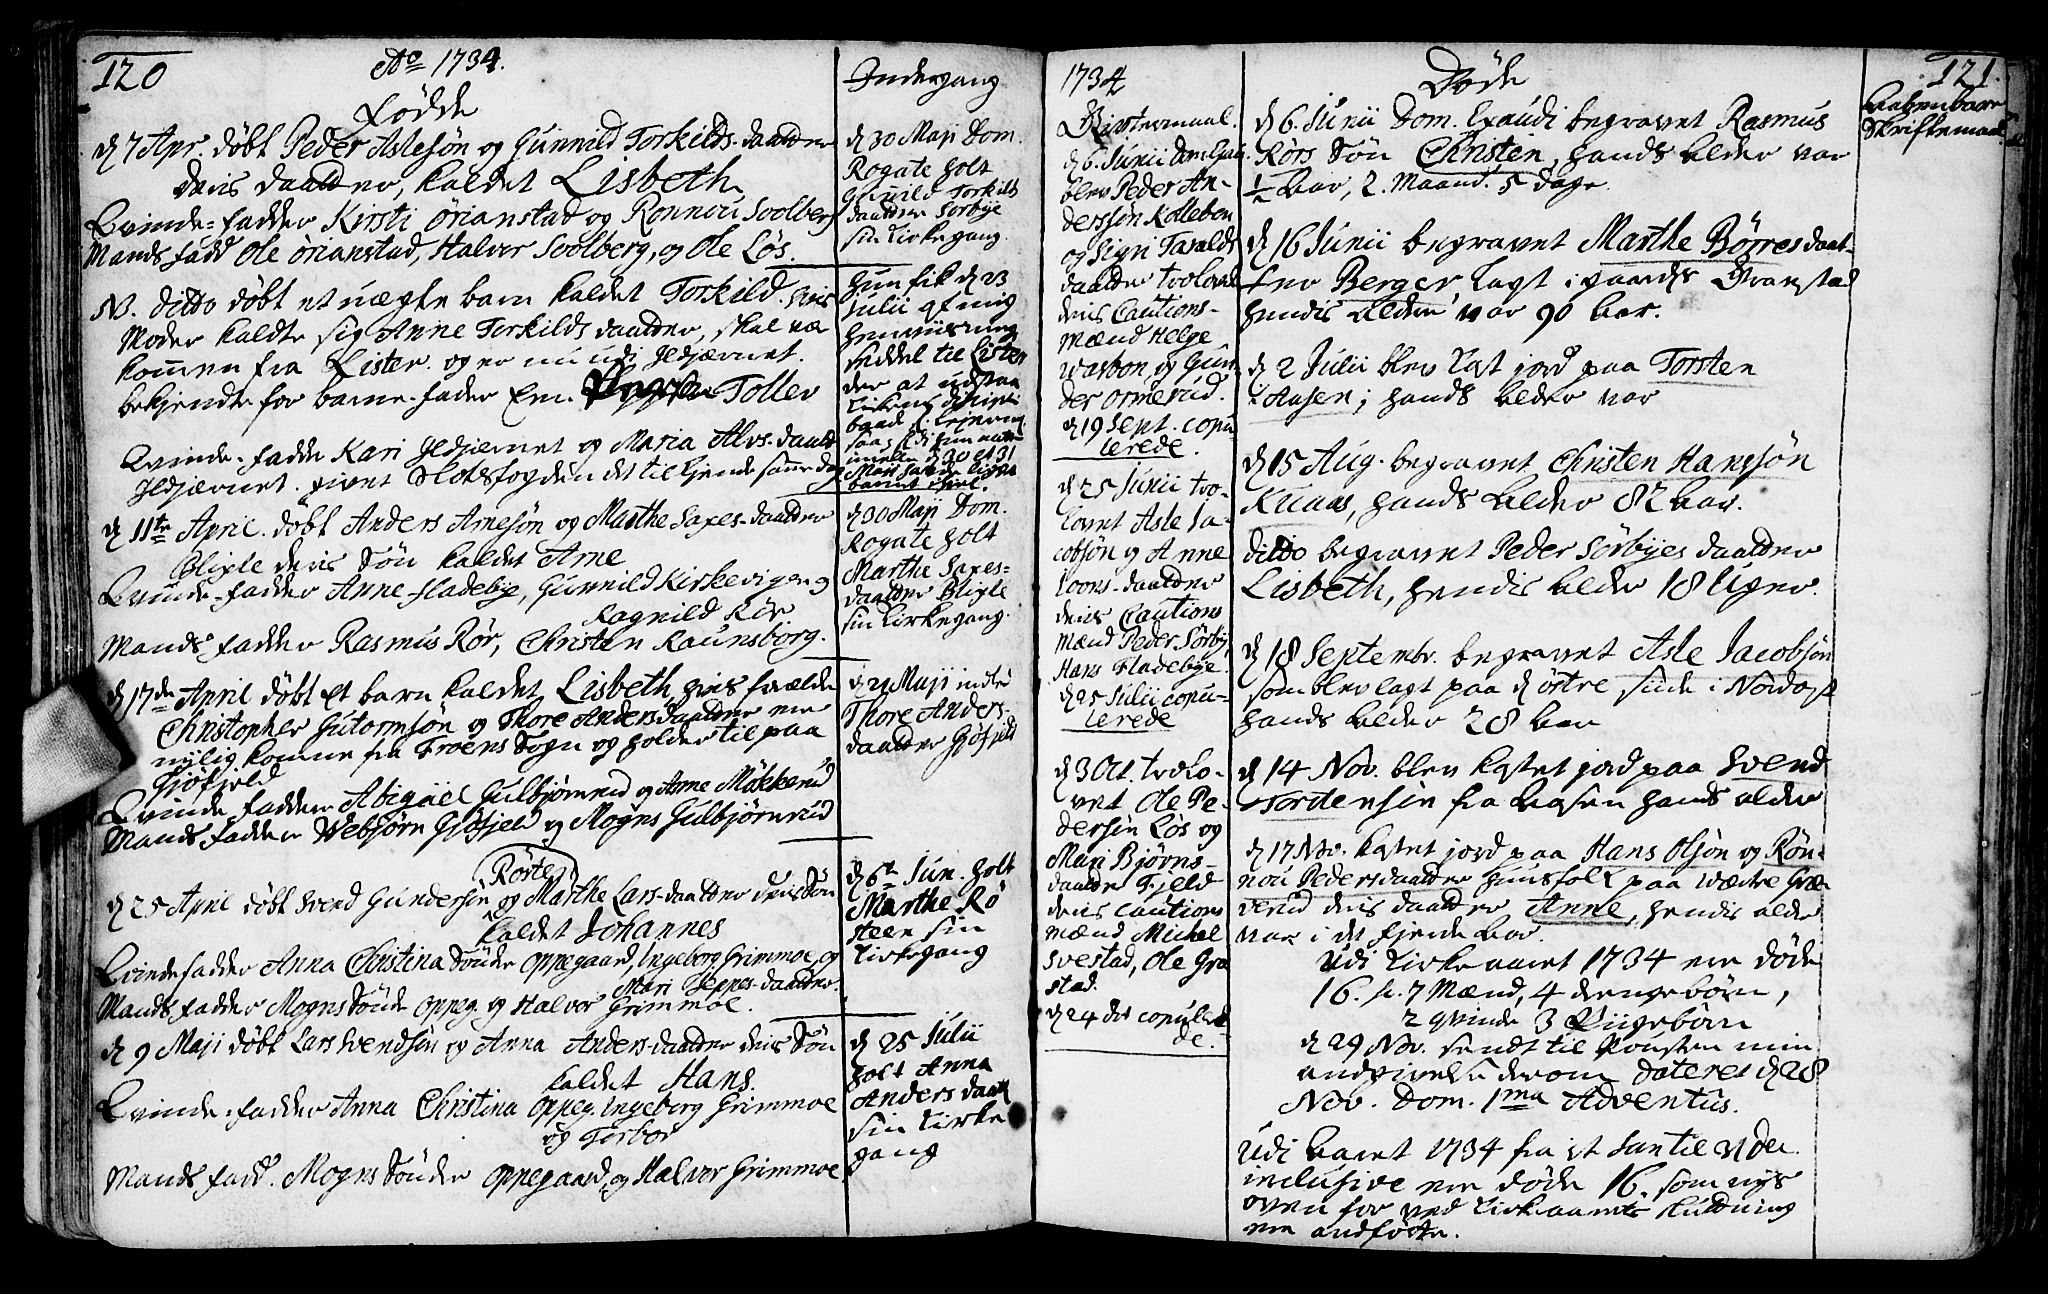 120
Ao 1734.
Fødde
d 7 Apr. døbt Peder Aslesøn og Gunnild Torkilds-daatter
deris daatter, kaldet Lisbeth
Qvinde-fadder Kirsti Ørianstad og Ronnou Soolberg
Mands fadd Ole Ørianstad, Halvor Soolberg, og Ole Løs.
N. ditto døbt et uægte barn kaldet Torkild. hvis
Moder kaldte sig Anne Torkilds daatter, skal væ
kommen fra Lister. og er nu udi Ildjærnet.
bekjendte for barne-fader En. Tollev
Qvinde-fadder Kari Ildjærnet og Maria Alvs-daatt
Ildjærnet. givet Slotsfogden det til kjende samme dag
d 11te April. døbt Anders Arnesøn og Marthe Saxes-daatter
Blixle deris Søn kaldet Arne
Qvinde-fadder Anne Fladebye, Gunnild Kirkevigen og
Ragnild Rør
Mands fadder Rasmus Rør, Christen Raunsborg.
d 17de April døbt et barn kaldet Lisbeth, hvis forældre
Christopher Gutormsøn og Thore Anders daatter ere
nylig komne fra Froens Sogn og holder til paa
Gjøfjeld
Qvinde fadder Abigael Gulbjørnrud og Anne Møkkerud
Mands fadder Webjørn Gjøfjeld og Mogns Gulbjørnrud
Røsten
d 25 April døbt Svend Gundersøn og Marthe Lars-daatter deris Søn
kaldet Johannes
Qvinde fadder Anna Christina Søndre Oppegaard, Ingeborg Grimmoe, og
Mari Jeppes-daatter.
Mands fadder Mogns Søndre Oppeg. og Halvor Grimmoe.
d 9 Maji døbt Lars Svendsøn og Anna Anders-daatter deris Søn
kaldet Hans.
Qvinde-fadder Anna Christina Oppeg. Ingeborg Grimmoe
og Torbor
Mands fadd. Mogns Søndre Oppegaard, og Halvor Grimmoe
Indergang
d 30 Maji Dom.
Rogate holt
Gunnild Torkilds
daatter Sørbye
sin Kirkegang.
hun fik d 23
Julii af mig
henviisning
seddel til Lister
der at udstaa
Kirkens disciplin
d 30 et 31
Maji
d 30 Maji Dom.
Rogate holt
Marthe Saxes-
daatter Blixle
sin Kirkegang.
d 29 Maji indle
Thore Anders-
daatter Gjøfjeld
d 6te Jun. holt
Marthe Rø
steen sin
Kirkegang
d 25 Julii
holt Anna
Anders daatt
sin Kirke
gang
1734
Ægtermaal.
d 6. Junii Dom. Exau.
blev Peder An-
derssøn Kollebon
og Sigri Taralds
daatter trolovet
deris Cautions-
mænd Helge
Wasbon, og Gun
der Ormerud.
d 19 Sept. copu
lerede.
d 25 Junii tro-
lovet Asle Ja-
cobsøn og Anne
Toons-daatter
deris Cautions
mænd Peder Sørby
Hans Fladebye.
d 25 Julii copu-
lerede
d 3 Oct. trolo-
vet Ole Pe-
dersøn Løs og
Mari Bjørns-
daatter Fjeld
deris Cautions
mænd Michel
Svestad, Ole Gra
stad.
d 24 dit copulert
de.
Døde
d 6. Junii Dom. Exaudi begravet Rasmus
Rørs Søn Christen, hands Alder var
1/2 Aar, 2. Maand. 5 dage.
d 16 Junii begravet Marthe Børresdaat-
ter Berger lagt i gaards Granstad
hendis Alder var 90 Aar.
d 2 Julii blev kast jord paa Torsten
i Aasen; hands Alder var
d 15 Aug. begravet Christen Hanssøn
Knaas, hands Alder 82 Aar.
ditto begravet Peder Sørbyes daatter
Lisbeth, hendis Alder 18 Uger.
d 18 Septembr. begravet Asle Jacobsøn
som blev lagt paa d østre siide i Nordost
hands Alder 28 Aar
d 14 Nov. blev kastet jord paa Svend
Tordensøn fra Aasen hands alder
d 17 Nov. kastet jord paa Hans Olsøn og Røn-
nou Pedersdaatter huusfolk paa Wæstre Græ-
verud deris daatter Anne, hendis alder
var i det fierde Aar.
Udi Kirke aaret 1734 ere døde
16. ɔ: 7 Mænd, 4 drengebørn,
2 qvinde 3 Piigebørn
d 29 Nov. sendt til Provsten min
andgivelse derom dateret d 28
Nov. Dom. 1ma Adventus.
Udi Aaret 1734 fra 1st Jan til Ulti Dec.
inclusive ere døde 16. som nys
oven for ved Kirkeaarets slutning
ere andførte.
121.
Aabenbare
Skriftemaal.